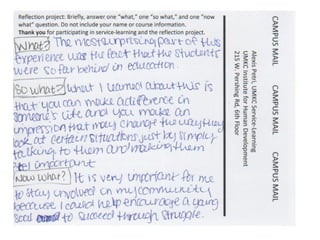 Reflection project: Briefly, answer one "what," one "so what," and one "now
what" question. Do not include your name or course information.
Thank you for participating in service-learning and the reflection project.
What? The most surprising part of this
experience was the fact that the students
were so far behind in education.
So what? What I learned about this is
that you can make a difference in
someone's life and you make an
impression that may change the way they
look at certain situations just by simply
talking to them and making them
feel important
Now What? It is very important for me
to stay involved in my community
because I could help encourage a young
soul to succeed through struggle.
CAMPUS MAIL CAMPUS MAIL CAMPUS MAIL
Alexis Petri, UMKC Service-Learning
UMKC Institute for Human Development
215 W. Pershing Rd, 6th Floor